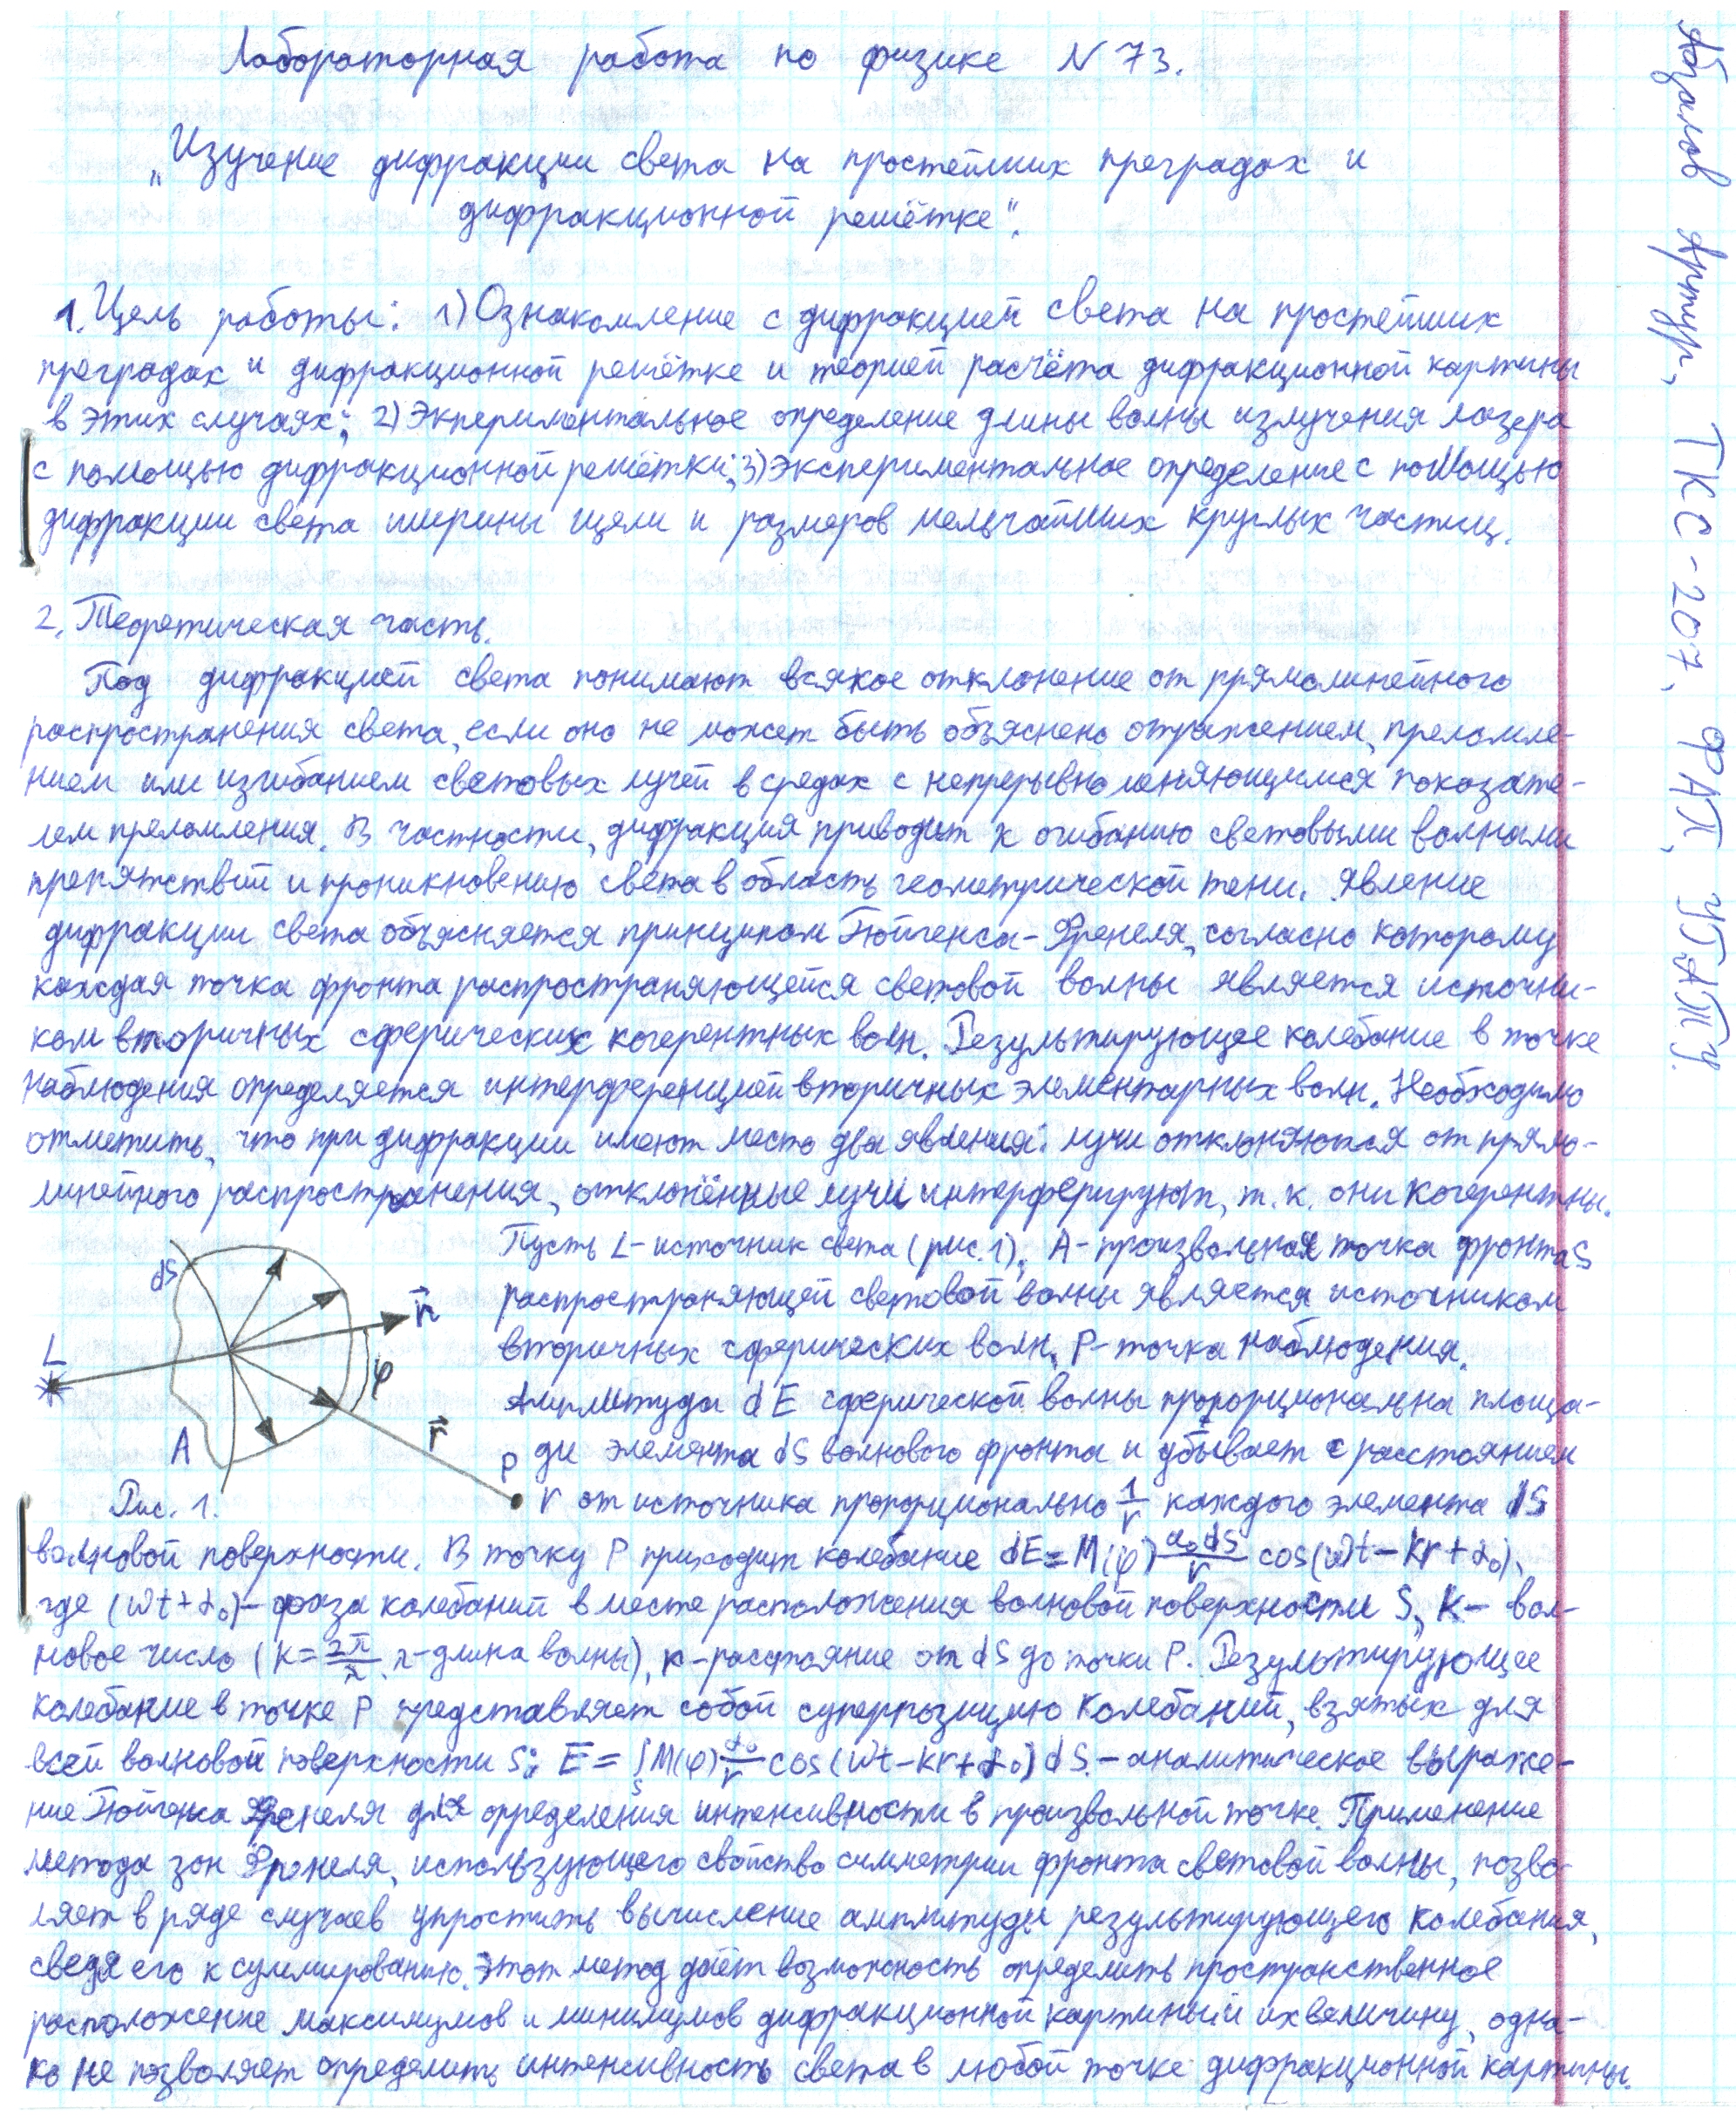 Лабораторная работа по физике N 73.
„Изучение дифракции света на простейших преградах и
дифракционной решётке".
1. Цель работы: 1) Ознакомление с дифракцией света на простейших
преградах и дифракционной решётке и теорией расчёта дифракционной картины
в этих случаях; 2) Экпериментальное определение длины волны излучения лазера
с помощью дифракционной решётки; 3) экспериментальное определение с помощью
дифракции света ширины щели и размеров мельчайших круглых частиц.
2. Теоретическая часть.
Под дифракцией света понимают всякое отклонение от прямолинейного
распространения света, если оно не может быть объяснено отражением, преломле-
нием или изгибанием световых лучей в средах с непрерывно меняющимся показате-
лем преломления. В частности, дифракция приводит к огибанию световыми волнами
препятствий и проникновению света в область геометрической тени. Явление
дифракции света объясняется принципом Гюйгенса-Френеля, согласно которому
каждая точка фронта распространяющейся световой волны является источни-
ком вторичных сферических когерентных волн. Результирующее колебание в точке
наблюдения определяется интерференцией вторичных элементарных волн. Необходимо
отметить, что при дифракции имеют место два явления: лучи отклоняются от прямо-
линейного распространения, отклонённые лучи интерферируют, т.к. они когерентны.
Пусть L-источник света (рис. 1), A-произвольная точка фронта S
распространяющей световой волны является источником
вторичных сферических волн, P-точка наблюдения.
Амплитуда dE сферической волны пропорциональна площа-
ди элемента dS волнового фронта и убывает с расстоянием
r от источника пропорционально 1/r каждого элемента dS
dS
n⃗
L
φ
r⃗
A
P
Рис. 1.
волновой поверхности. В точку P приходит колебание dE = M(φ) a₀dS/r cos(ωt-kr+α₀),
где (ωt+α₀)-фаза колебаний в месте расположения волновой поверхности S, k- вол-
новое число (k = 2π/λ, λ-длина волны), r-расстояние от dS до точки P. Результирующее
колебание в точке P представляет собой суперпозицию колебаний, взятых для
всей волновой поверхности S: E = ∫ₛ M(φ) a₀/r cos(ωt-kr+α₀) dS - аналитическое выраже-
ние Гюйгенса Френеля для определения интенсивности в произвольной точке. Применение
метода зон Френеля, использующего свойство симметрии фронта световой волны, позво-
ляет в ряде случаев упростить вычисление амплитуды результирующего колебания,
сведя его к суммированию. Этот метод даёт возможность определить пространственное
расположение максимумов и минимумов дифракционной картины и их величину, одна-
ко не позволяет определить интенсивность света в любой точке дифракционной картины.
Абзалов Артур, ТКС-207, ФАП, УГАТУ.